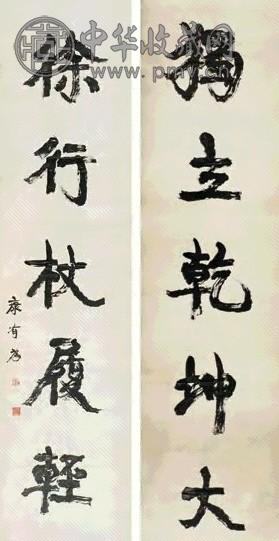 獨立乾坤大
徐行杖履輕
康有為
中华收藏网
www.pmcj.cn